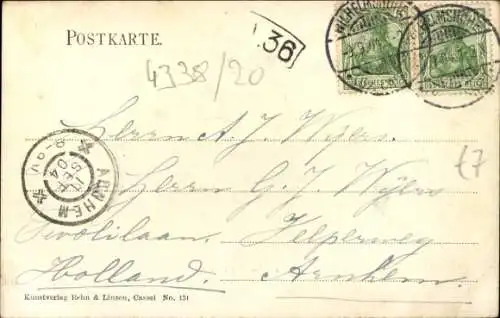 POSTKARTE.
36
4338/20
WILHELMSHÖHE
Herrn A. J. Wijers.
Herrn G. J. Wijers
£7
ARNHEM
SEP
04
Tivolilaan. Velperweg
Holland. Arnhem.
Kunstverlag Rehn & Linzen, Cassel No. 131